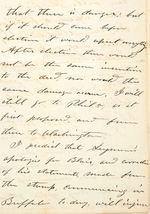 that there is danger, but
if it should come before
election it would upset anything
After election there would
not be the same incentive
to the deed nor would the
same damage ensue. I will
still go to Phila, as at
first proposed and from
there to Washington
I predict that Seymour's
apologies for Blair, and
of his statements made from
the stump, commencing in
Buffalo to day, will